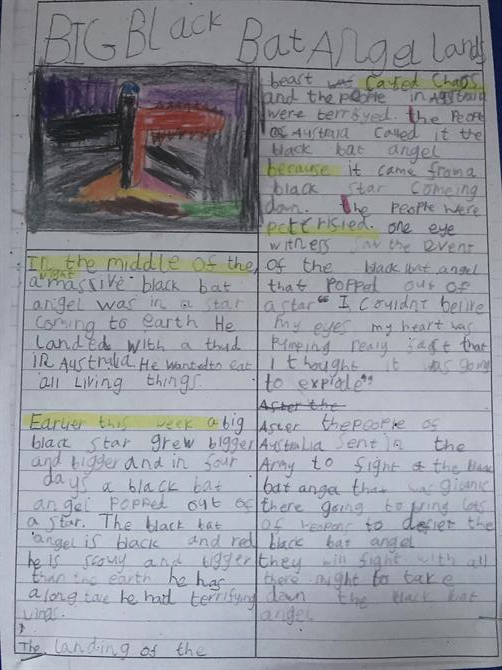 BIG BLack Bat Angel lands
In the middle of the
night
a massive black bat
angel was in a star
coming to earth He
Landed with a thud
in Australia. He wanted to eat
all Living things.
Earlier this week a big
black star grew bigger
and bigger and in four
days a black bat
angel POPPed out of
a star. The black bat
angel is black and red
he is scowy and bigger
than the earth he has
a long tale he had terrifying
wings.
The landing of the
beast was Called Chaos
and the people in Australia
were terrbyed. the People
of Australia Called it the
black bat angel
because it came from a
black star comeing
down. the people were
petrisied. one eye
witness saw the event
of the black bat angel
that POPPed out of
a star "I couldnt belive
my eyes my heart was
Pumping realy fast that
I thought it was going
to explode"
After the
After the people of
Australia sent in the
Army to fight the black
bat anga that was gigantic
there going to bring lots
of weapons to defeet the
black bat angel
they will fight with all
there might to take
down the black bat
angel